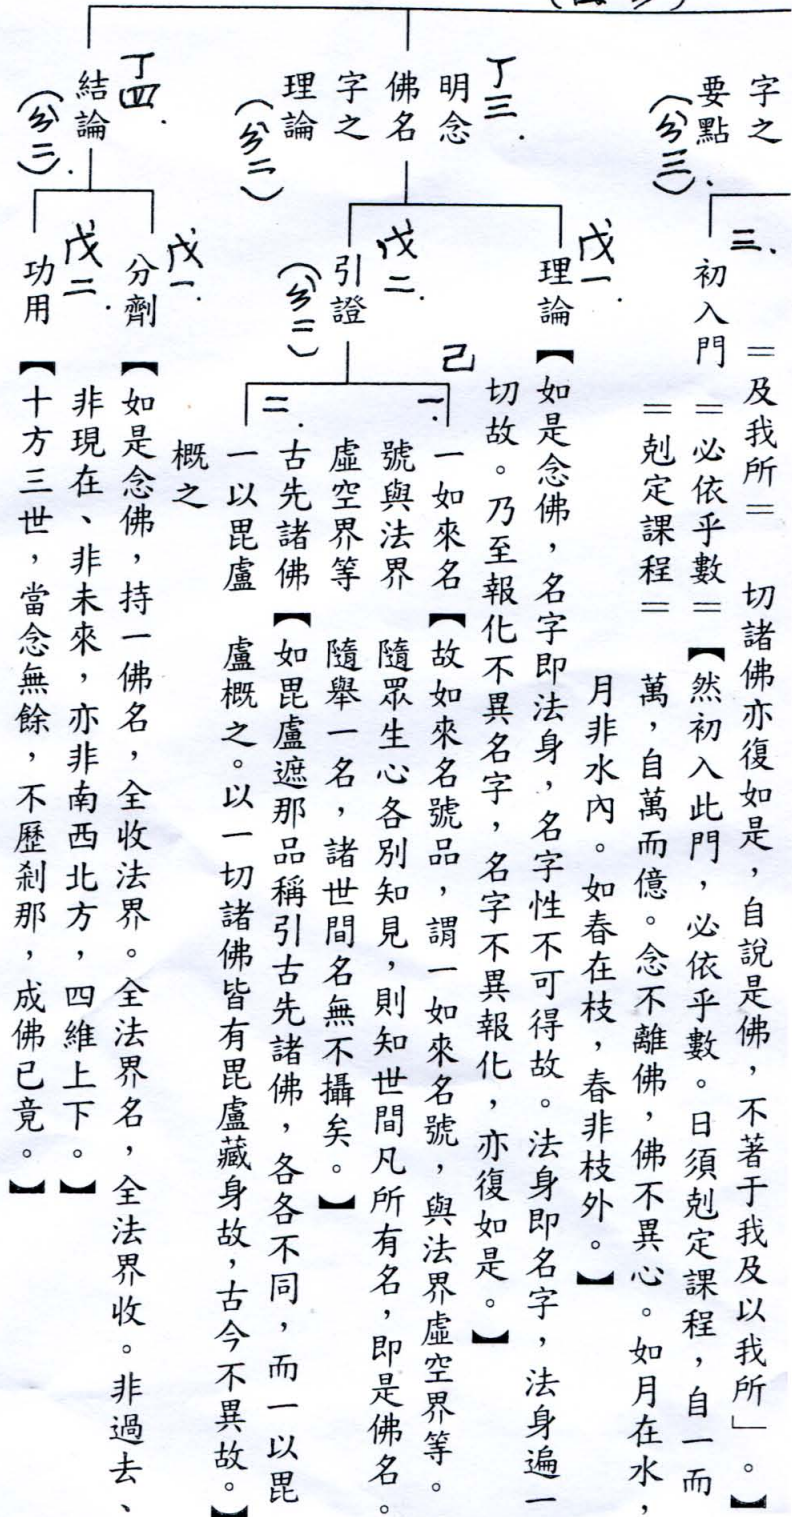 字之
要點
(分三).
三、
初入門
＝及我所＝
＝必依乎數＝
＝剋定課程＝
切諸佛亦復如是，自說是佛，不著于我及以我所」。】
【然初入此門，必依乎數。日須剋定課程，自一而
萬，自萬而億。念不離佛，佛不異心。如月在水，
月非水內。如春在枝，春非枝外。】
丁三.
明念
佛名
字之
理論
(分二)
戊一.
理論
【如是念佛，名字即法身，名字性不可得故。法身即名字，法身遍一
切故。乃至報化不異名字，名字不異報化，亦復如是。】
戊二.
引證
(分二)
己
一.
一如來名
號與法界
虛空界等
【故如來名號品，謂一如來名號，與法界虛空界等。
隨眾生心各別知見，則知世間凡所有名，即是佛名。
隨舉一名，諸世間名無不攝矣。】
二.
古先諸佛
一以毘盧
概之
【如毘盧遮那品稱引古先諸佛，各各不同，而一以毘
盧概之。以一切諸佛皆有毘盧藏身故，古今不異故。】
丁四.
結論
(分二).
戊一.
分劑
【如是念佛，持一佛名，全收法界。全法界名，全法界收。非過去、
非現在、非未來，亦非南西北方，四維上下。】
戊二.
功用
【十方三世，當念無餘，不歷剎那，成佛已竟。】